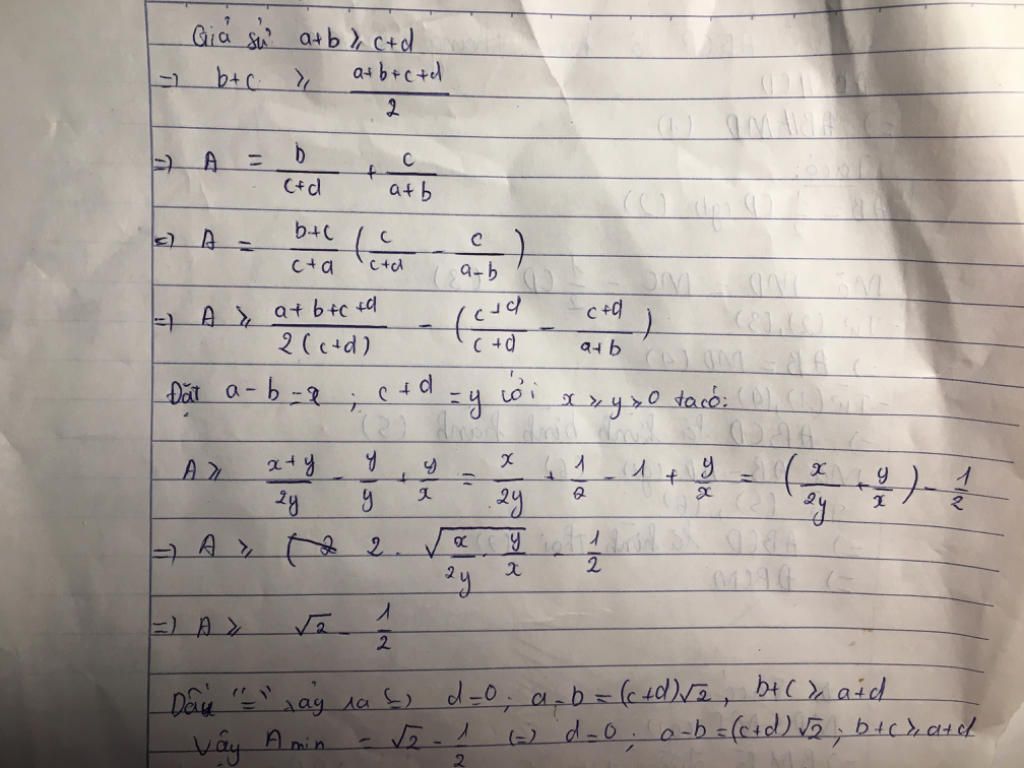 Giả sử a+b ≥ c+d
=> b+c ≥ (a+b+c+d)/2
=> A = b/(c+d) + c/(a+b)
=> A = (b+c)/(c+d) (c/(c+d) - c/(a-b))
=> A ≥ (a+b+c+d)/(2(c+d)) - ((c+d)/(c+d) - (c+d)/(a+b))
Đặt a-b=x ; c+d=y với x ≥ y ≥ 0 ta có:
A ≥ (x+y)/(2y) - y/y + y/x = x/(2y) + 1/2 - 1 + y/x = (x/(2y) + y/x) - 1/2
=> A ≥ 2 . √(x/(2y) . y/x) - 1/2
=> A ≥ √2 - 1/2
Dấu "=" xảy ra <=> d=0 ; a-b=(c+d)√2 ; b+c ≥ a+d
Vậy A min = √2 - 1/2 <=> d=0 ; a-b=(c+d)√2 ; b+c ≥ a+d